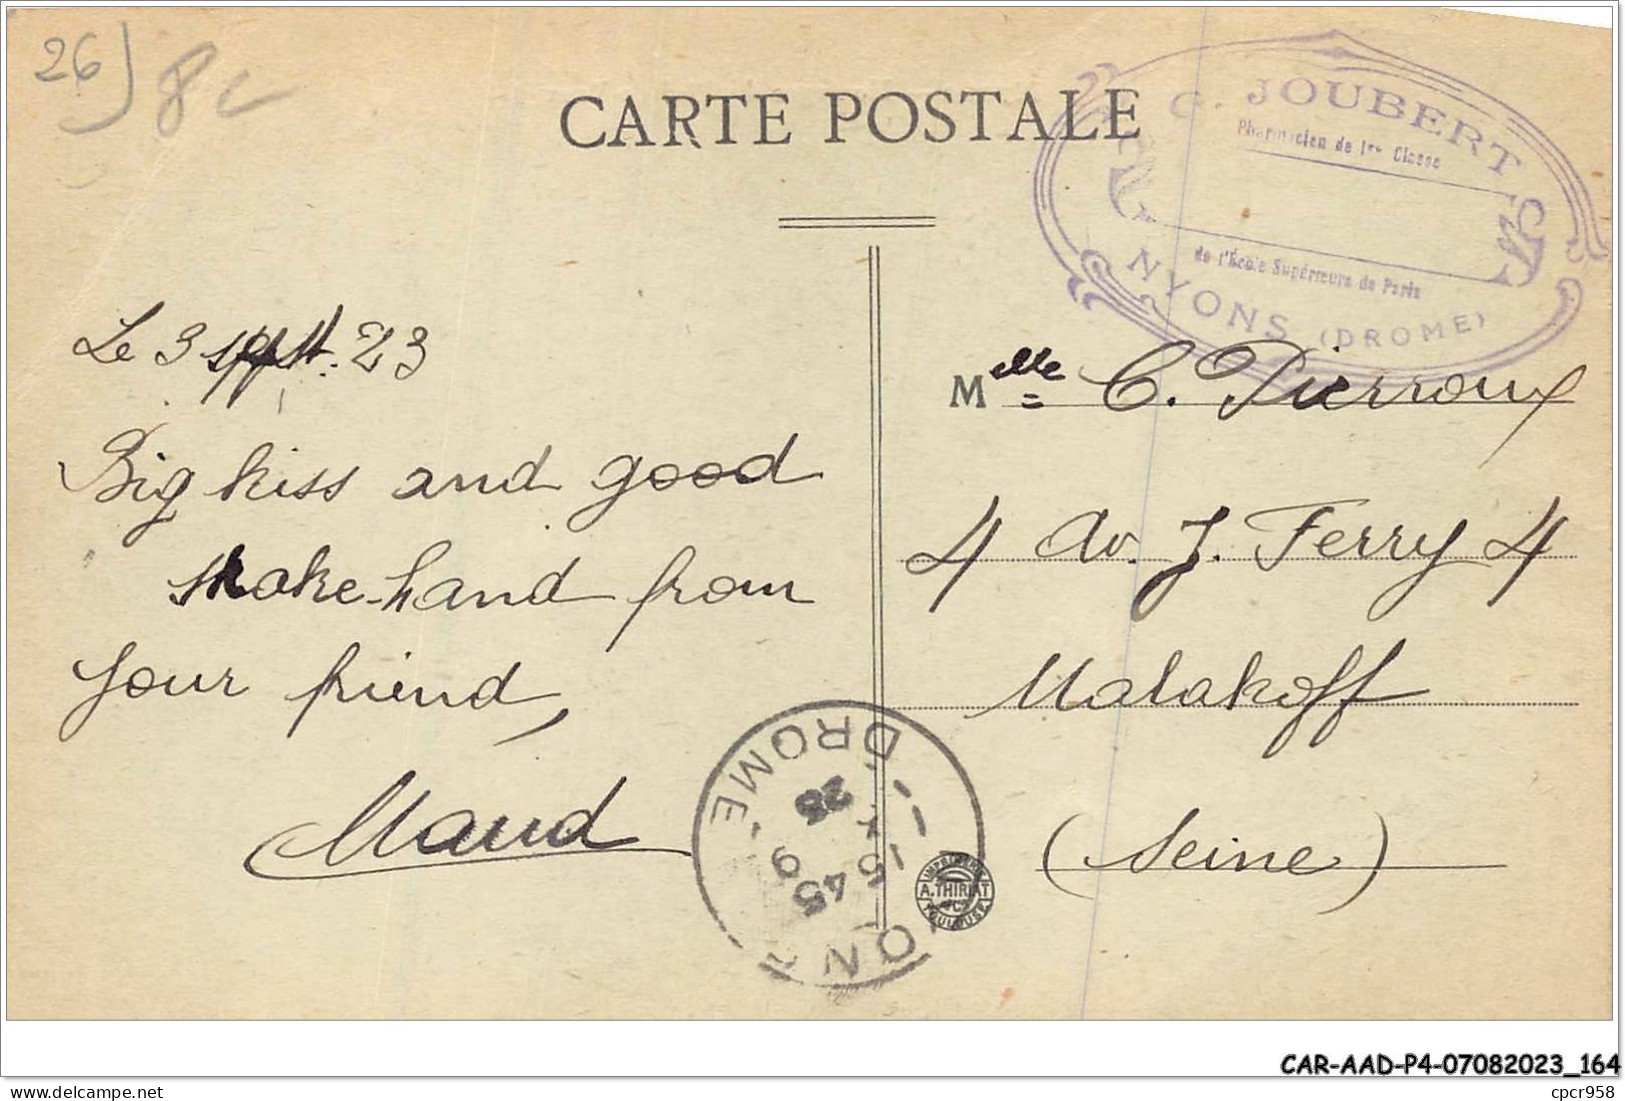 26) 8c
CARTE POSTALE
C. JOUBERT
Pharmacien de 1re Classe
de l'École Supérieure de Paris
NYONS (DROME)
Le 3 sept. 23
Big kiss and good
shake-hand from
your friend,
Maud
Melle C. Pierroux
4 Av. J. Ferry 4
Malakoff
(Seine)
DROME
15 45
IMPRIMERIE
A. THIRIAT
TOULOUSE
CAR-AAD-P4-07082023_164
cpcr958